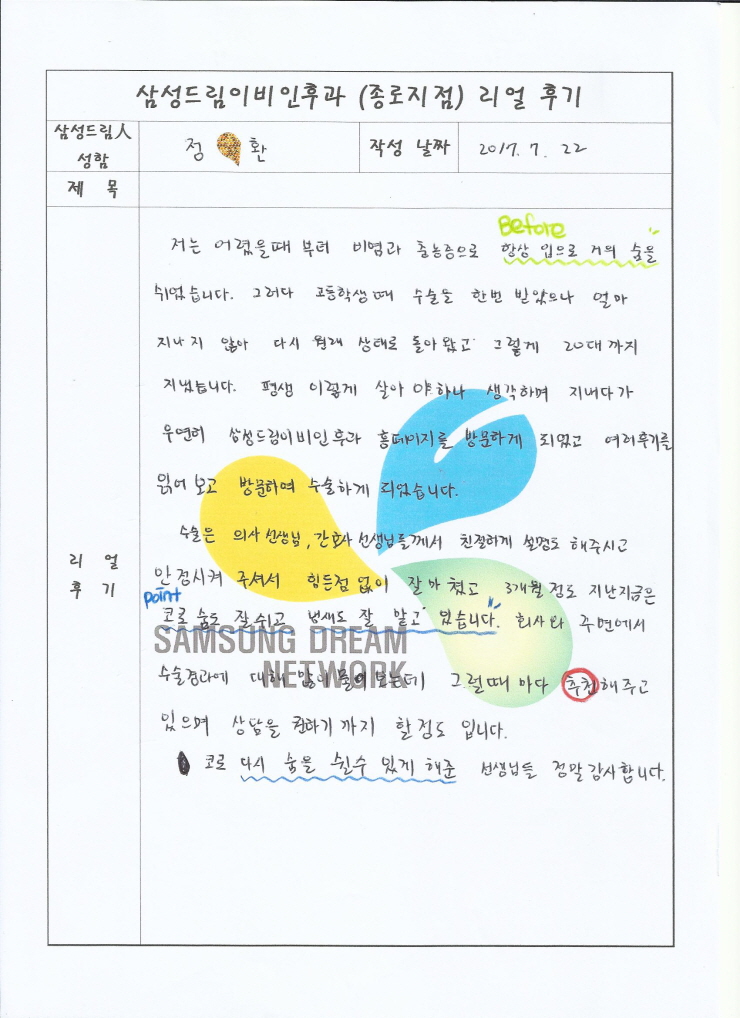 삼성드림이비인후과 (종로지점) 리얼 후기
삼성드림人
성함
정 환
작성 날짜
2017. 7. 22
제 목
Before
저는 어렸을때 부터 비염과 축농증으로 항상 입으로 거의 숨을
쉬었습니다. 그러다 고등학생때 수술을 한번 받았으나 얼마
지나지 않아 다시 원래 상태로 돌아왔고 그렇게 20대까지
지냈습니다. 평생 이렇게 살아야하나 생각하며 지내다가
우연히 삼성드림이비인후과 홈페이지를 방문하게 되었고 여러후기를
읽어 보고 방문하여 수술하게 되었습니다.
수술은 의사선생님, 간호사선생님들께서 친절하게 설명도 해주시고
리 얼
후 기
안정시켜 주셔서 힘든점 없이 잘마쳤고 3개월 정도 지난지금은
point
코로 숨도 잘쉬고 냄새도 잘 맡고 있습니다. 회사와 주변에서
SAMSUNG DREAM
NETWORK
수술경과에 대해 많이 물어보는데 그럴때 마다 추천해주고
있으며 상담을 권하기까지 할정도 입니다.
코로 다시 숨을 쉴수 있게 해준 선생님들 정말감사합니다.